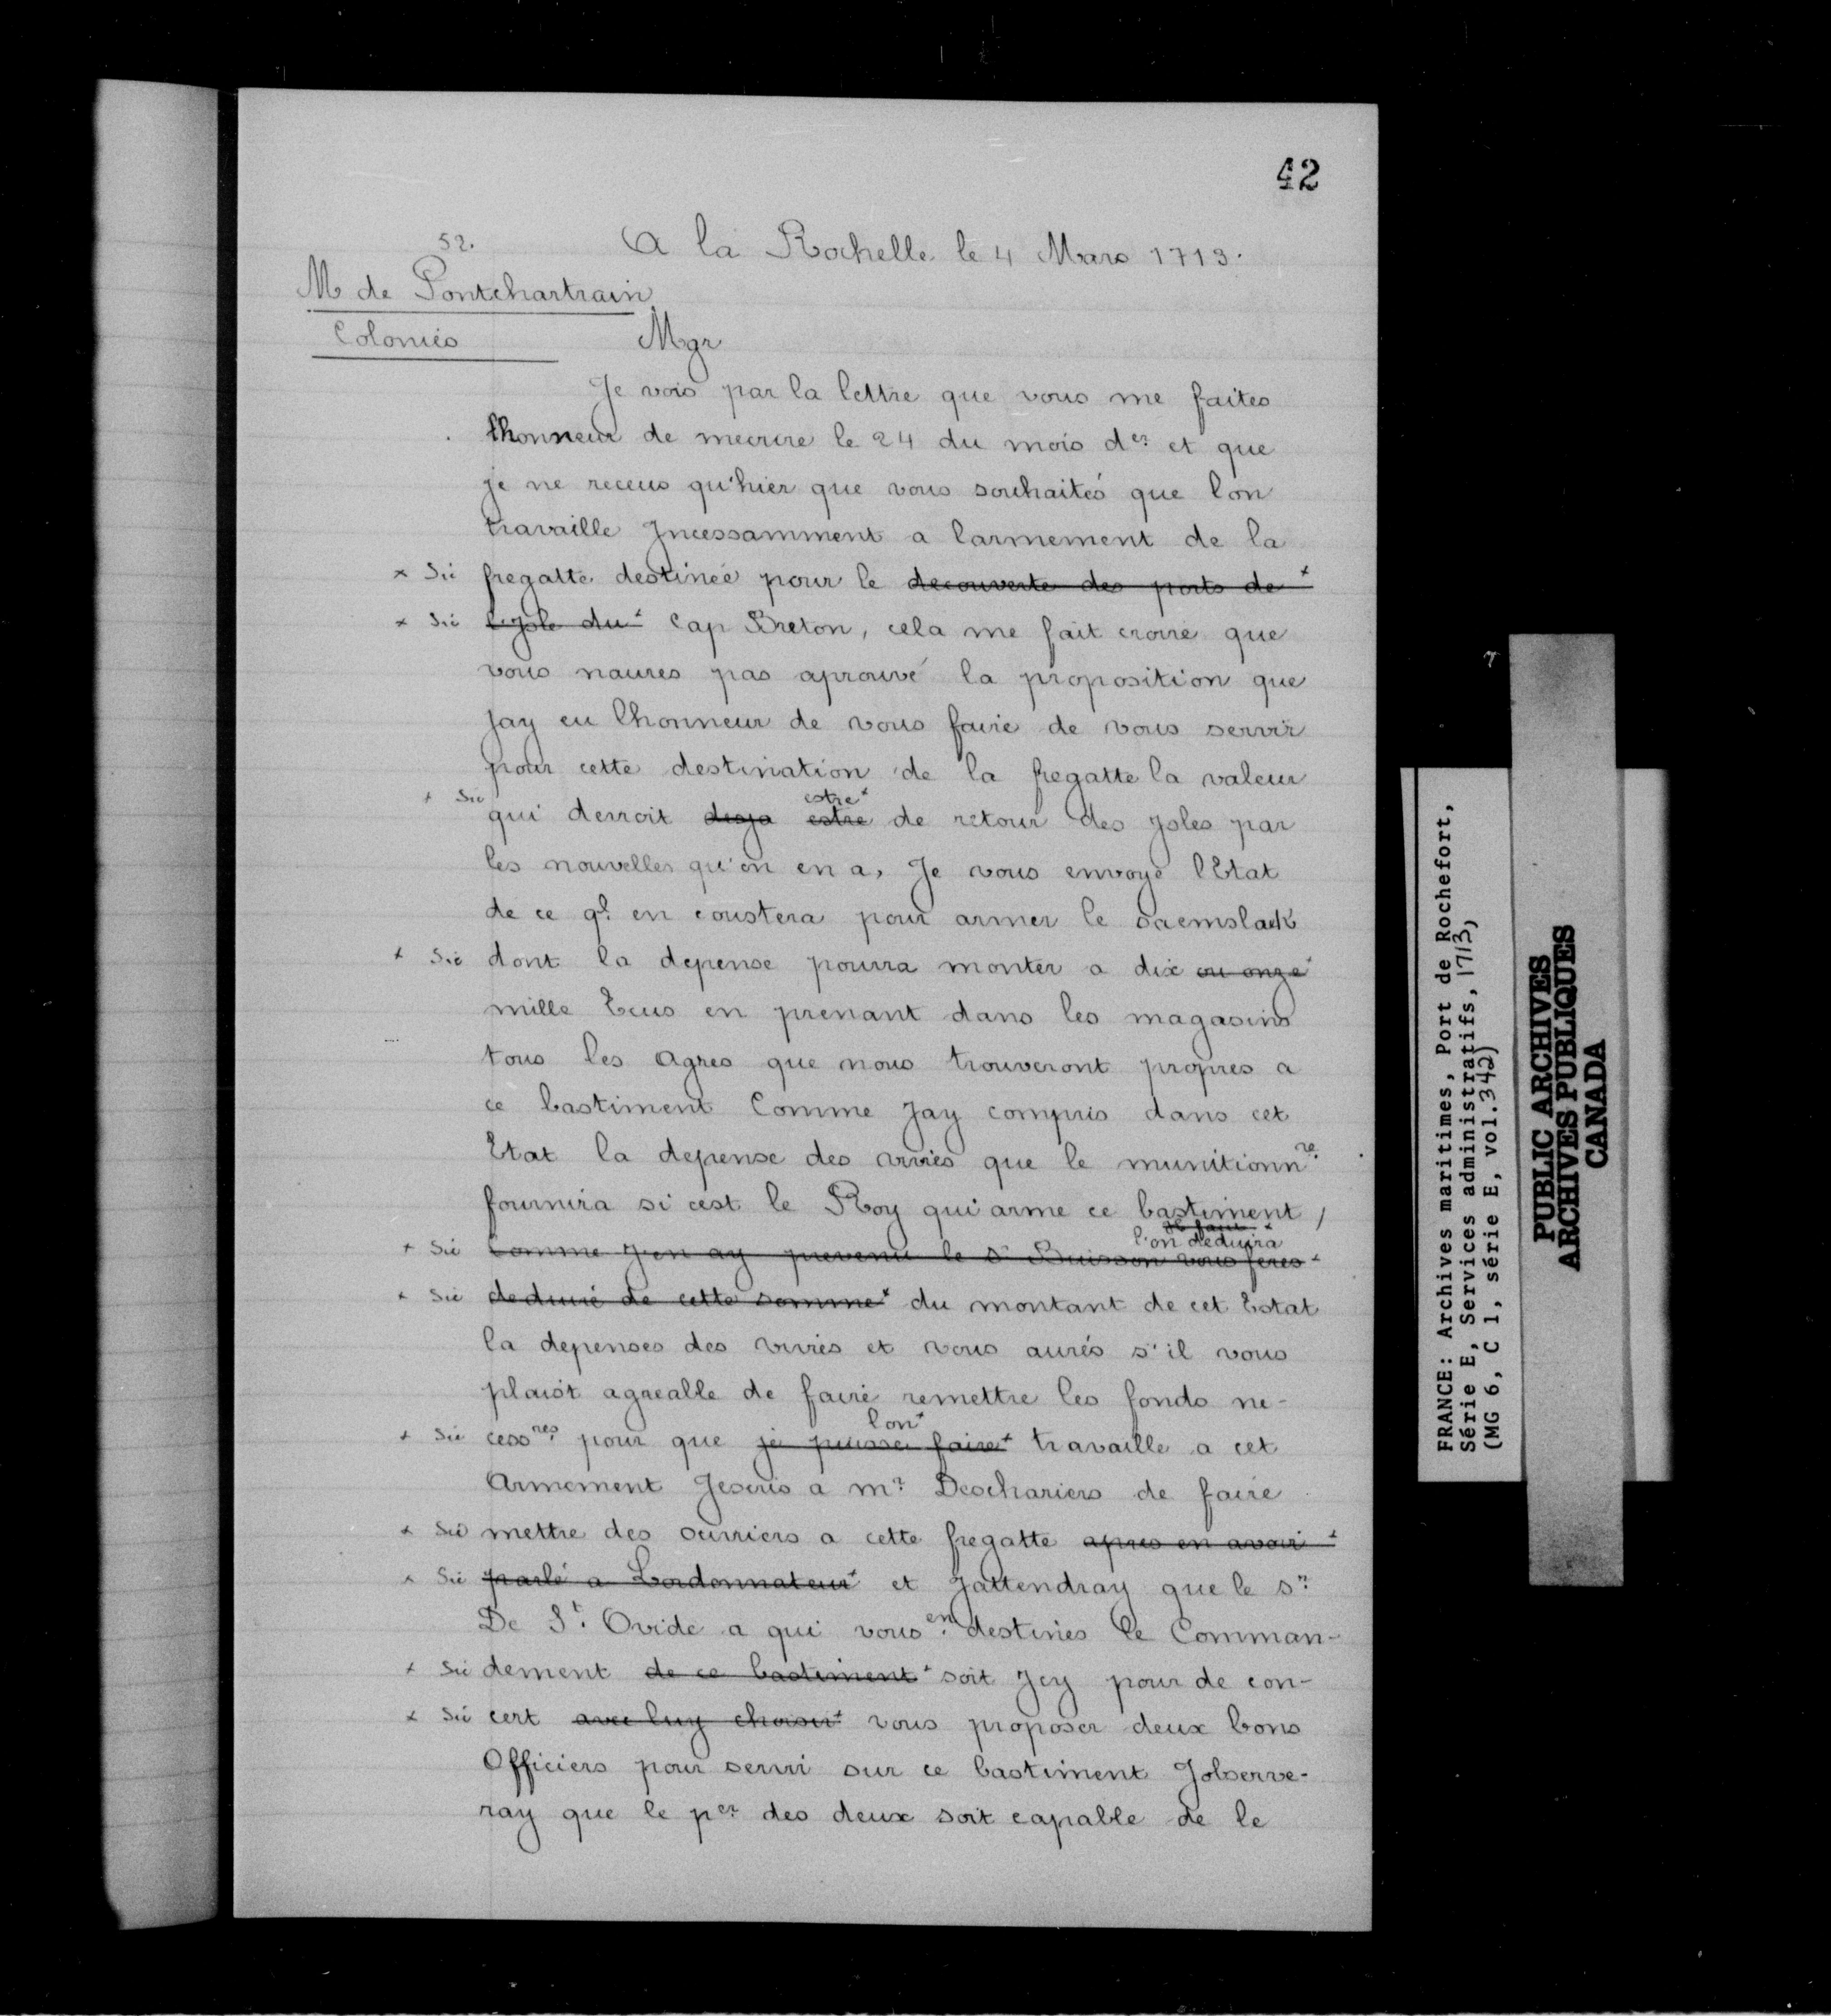 42
52.
A la Rochelle le 4 Mars 1713.
M de Pontchartrain
Colonies
Mgr
Je vois par la lettre que vous me faites
lhonneur de mecrire le 24 du mois der et que
je ne receus qu'hier que vous souhaités que lon
travaille Jncessamment a larmement de la
x Sic fregatte destinée pour le decouverte des ports de x
x Sic l'Jsle du x Cap Breton, cela me fait croire que
vous naures pas aprouvé la proposition que
Jay eu lhonneur de vous faire de vous servir
pour cette destination de la fregatte la valeur
x Sic estre x
qui devroit deja estre de retour des Jsles par
les nouvelles qu'on en a, Je vous envoye lEtat
de ce ql en coustera pour armer le Saemslack
x Sic dont la depense pourra monter a dix ou onze x
mille Ecus en prenant dans les magasins
tous les agres que nous trouveront propres a
ce bastiment Comme Jay compris dans cet
Etat la depense des vivres que le munitionnre
fournira si cest le Roy qui arme ce bastiment,
l'on deduira
x Sic Comme J'en ay prevenu le Sr Buisson vous feres x
x Sic deduire de cette somme x du montant de cet Estat
la depenses des vivres et vous aurés s'il vous
plaist agreable de faire remettre les fonds ne-
lon x
x Sic cessres pour que je puisse faire x travaille a cet
Armement Jescris a mr Deschariers de faire
x Sic mettre des ouvriers a cette fregatte apres en avoir x
x Sic parlé a Lordonnateur x et Jattendray que le Sr
De St. Ovide a qui vous en destinés le Comman-
x Sic dement de ce bastiment x soit Jcy pour de con-
x Sic cert avec luy choisir x vous proposer deux bons
Officiers pour servir sur ce bastiment Jobserve-
ray que le per des deux soit capable de le
FRANCE: Archives maritimes, Port de Rochefort,
Série E, Services administratifs, 1713,
(MG 6, C 1, série E, vol.342)
PUBLIC ARCHIVES
ARCHIVES PUBLIQUES
CANADA